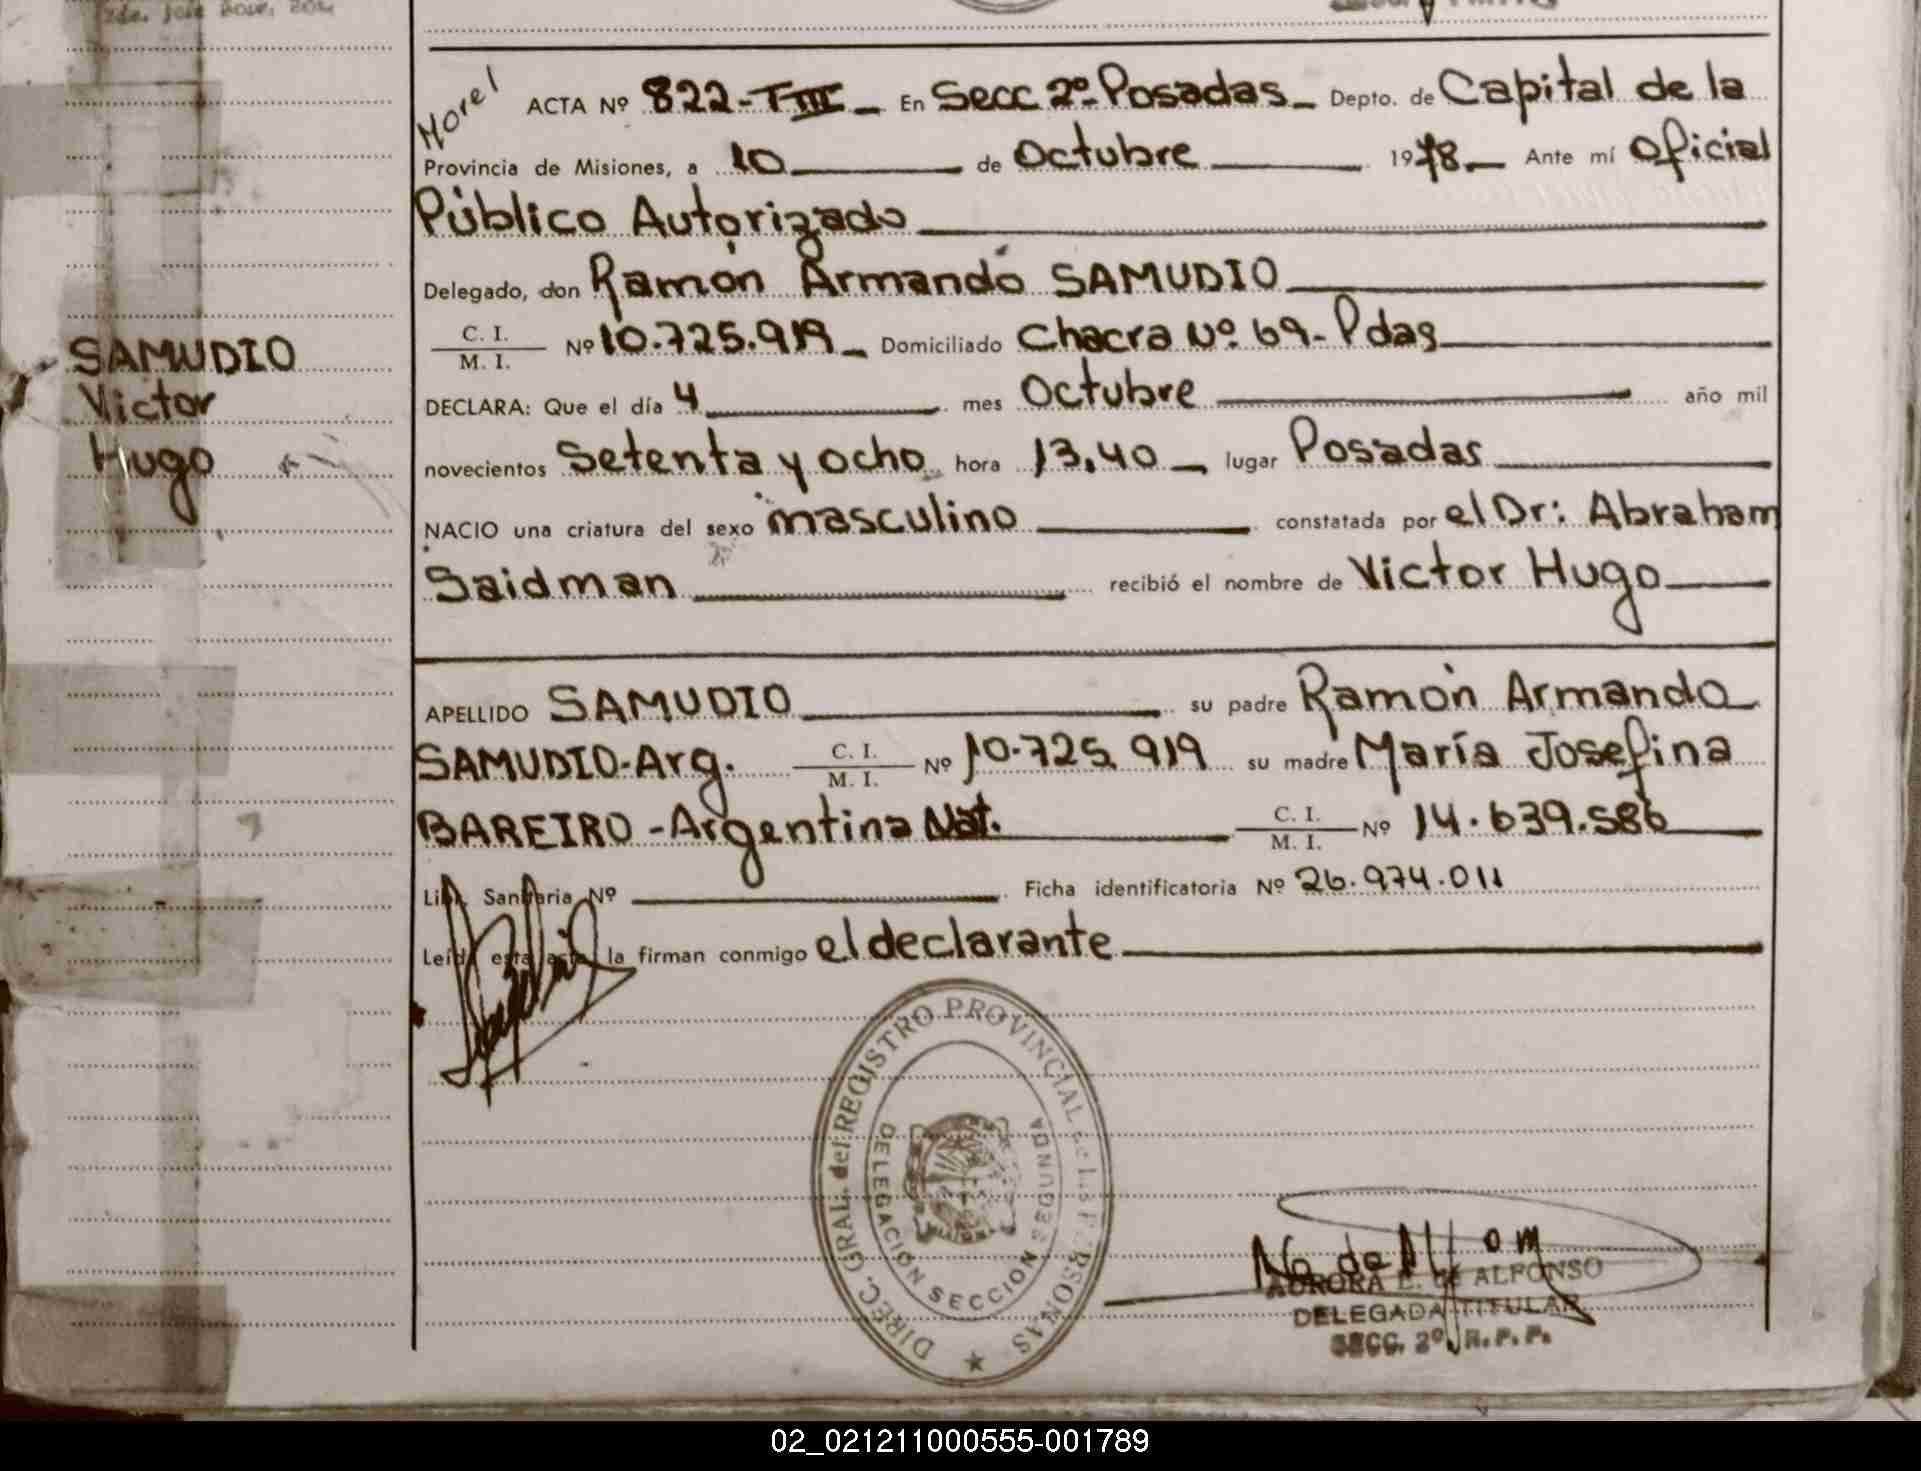 Morel
ACTA Nº 822-TIII En Secc 2º Posadas Depto. de Capital de la
Provincia de Misiones, a 10 de Octubre 1978 Ante mí Oficial
Público Autorizado
Delegado, don Ramón Armando SAMUDIO
C. I.
M. I. Nº 10.725.919 Domiciliado Chacra Nº 69- Pdas
DECLARA: Que el día 4 mes Octubre año mil
novecientos Setenta y ocho hora 13,40 lugar Posadas
NACIO una criatura del sexo masculino constatada por el Dr: Abraham
Saidman recibió el nombre de Victor Hugo
SAMUDIO
Victor
Hugo
APELLIDO SAMUDIO su padre Ramón Armando
SAMUDIO-Arg. C. I.
M. I. Nº 10.725.919 su madre María Josefina
BAREIRO-Argentina Nat. C. I.
M. I. Nº 14.639.586
Libr. Sanitaria Nº Ficha identificatoria Nº 26.974.011
Leída esta acta, la firman conmigo el declarante
DIREC. GRAL. del REGISTRO PROVINCIAL de las PERSONAS
DELEGACIÓN SECCION SEGUNDA
AURORA E. de ALFONSO
DELEGADA TITULAR
SECC. 2º, R. P. P.
02_021211000555-001789